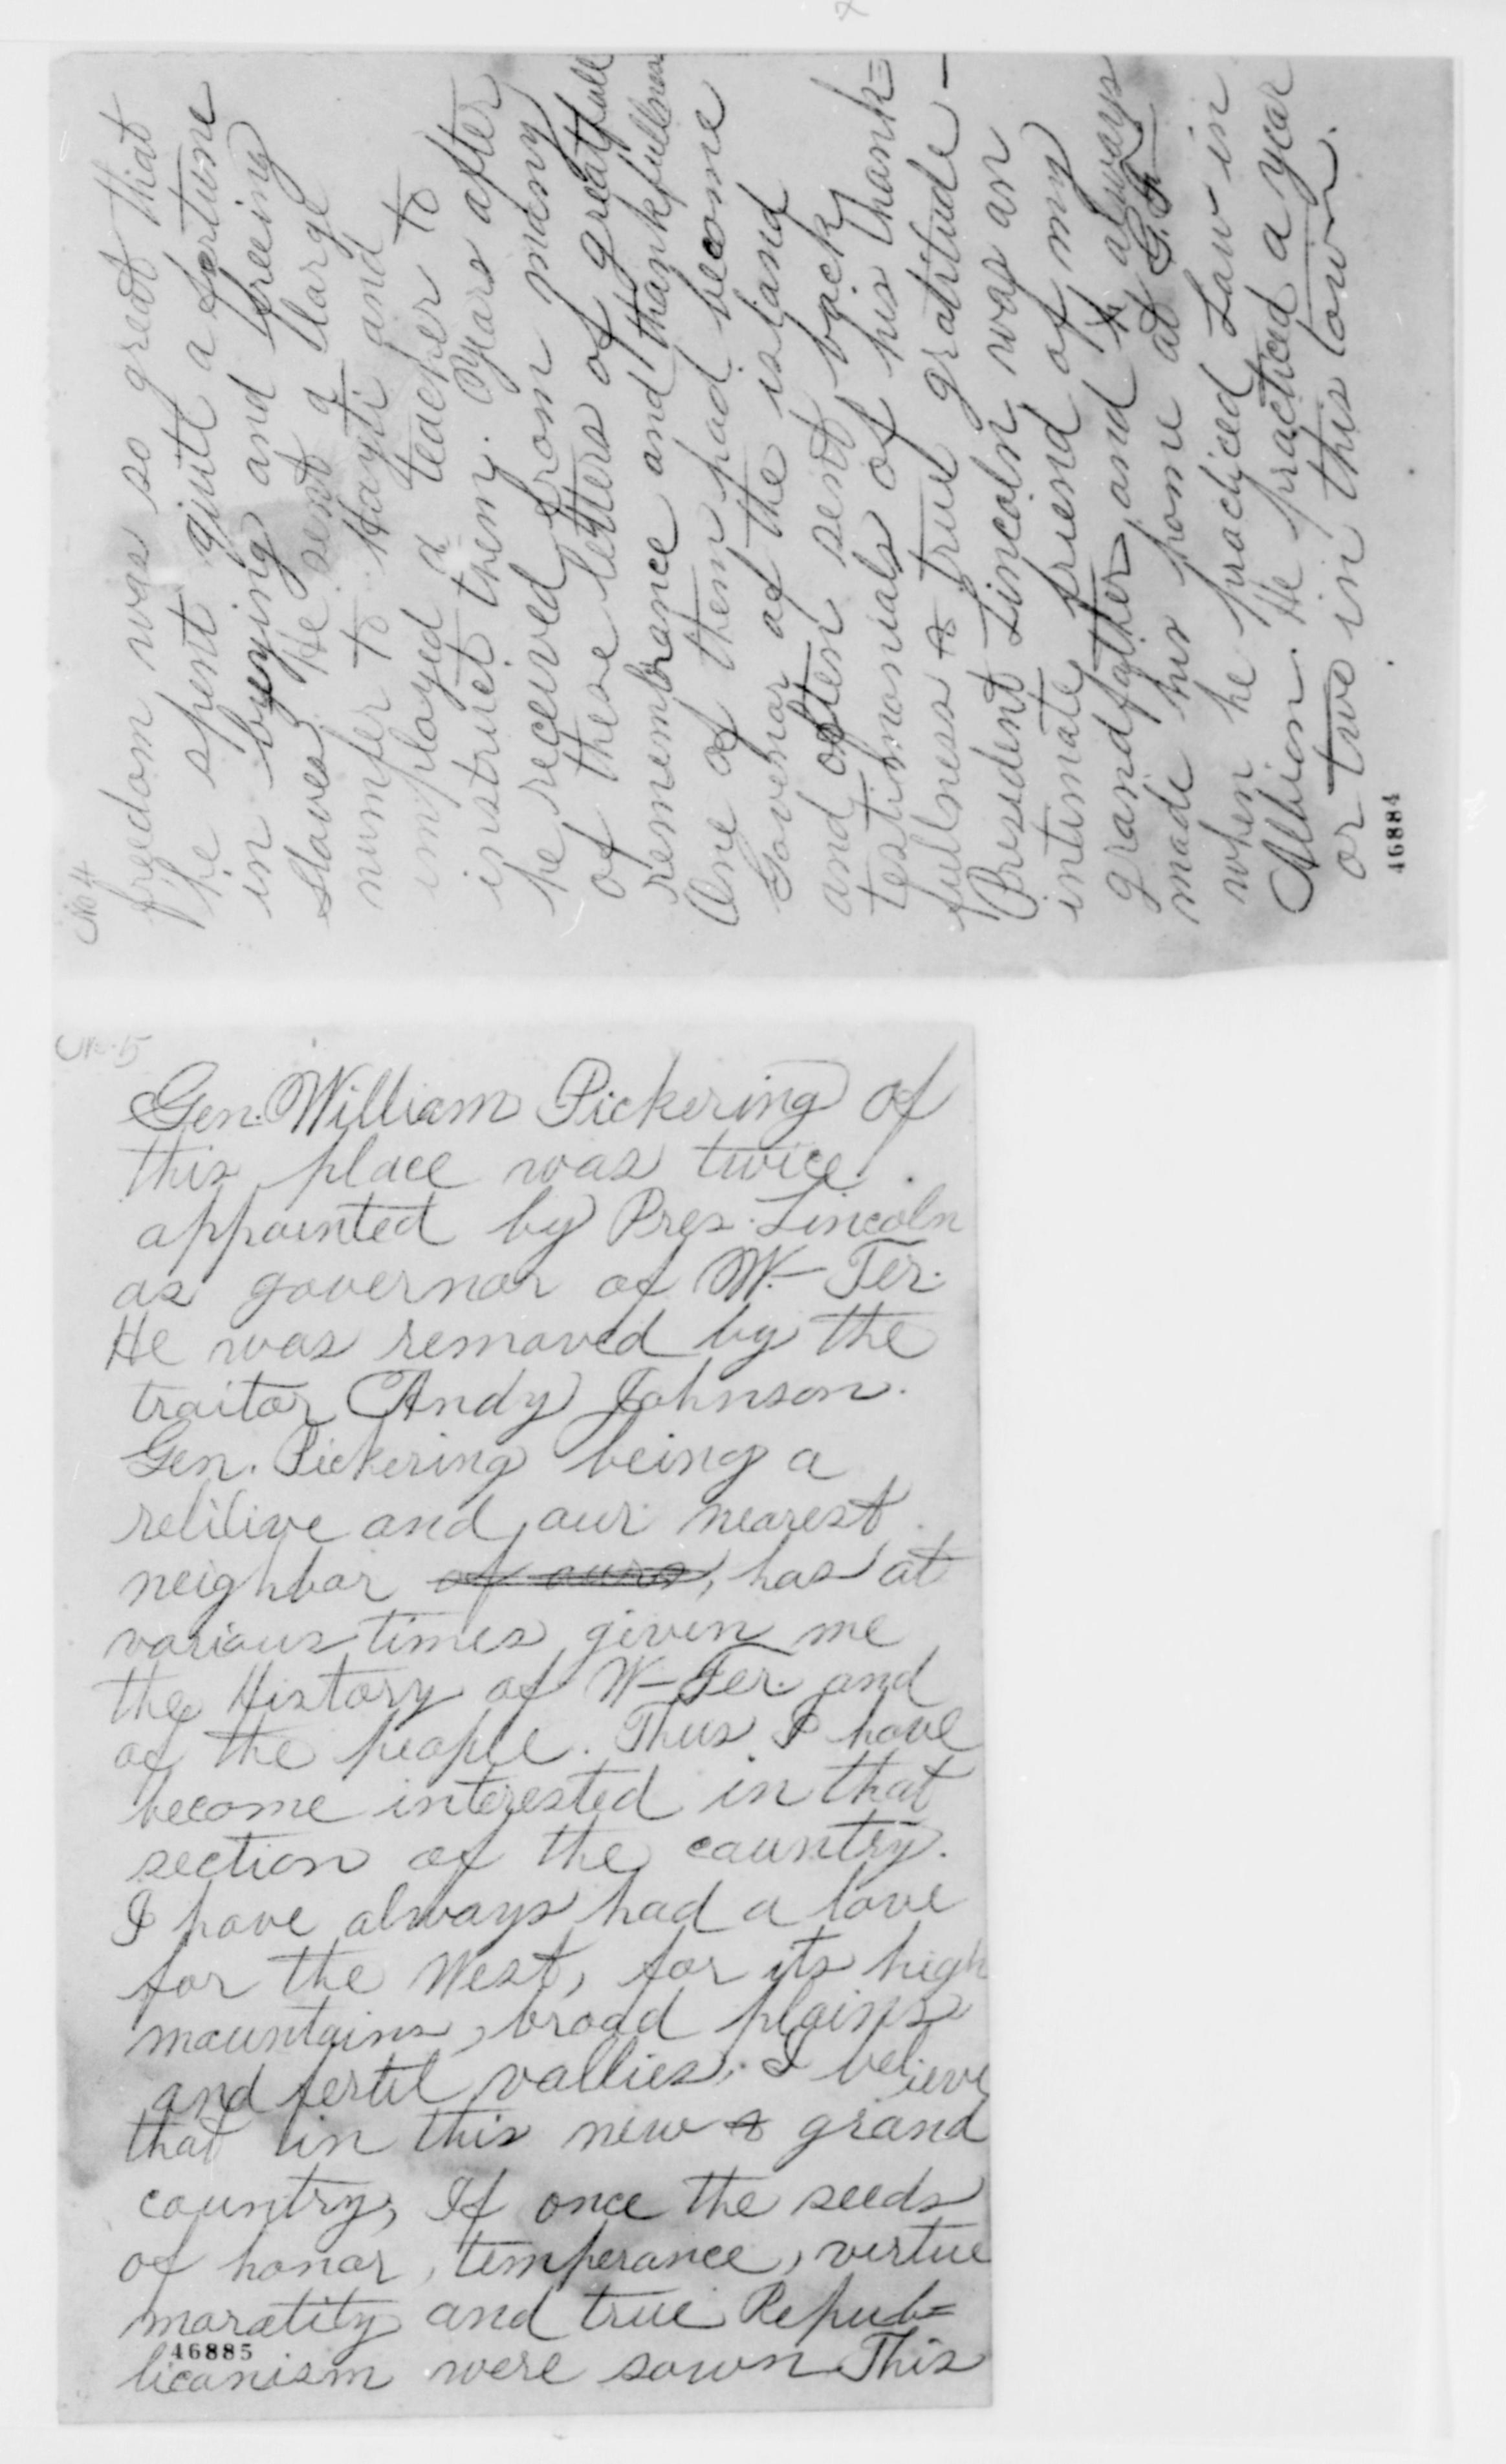 No 4
freedom was so great that
he spent quite a fortune
in buying and freeing
slaves. He sent a large
number to Hayti and
imployed a teacher to
instruct them. Years after
he received from many
of these letters of greatfull
remembrance and thankfullness
One of them had become
Govenor of the island
and often sent back
testimonials of his thank=
fullness & true gratitude –
President Lincoln was an
intimate friend of my
grandfather, and always
made his home at G. F.
when he practiced Law in
Albion. He practiced a year
or two in this town.
46884
No. 5
Gen. William Pickering of
this place was twice
appointed by Pres. Lincoln
as governor of W– Ter.
He was removed by the
traitor Andy Johnson.
Gen. Pickering being a
relitive and our nearest
neighbor of ours, has at
various times given me
the History of W– Ter. and
of the people. Thus I have
become interested in that
section of the country.
I have always had a love
for the West, for its high
mountains, broad plains
and fertil vallies. I believe
that in this new & grand
country, If once the seeds
of honor, temperance, virtue
moratity and true Repub=
licanism were sown This
46885